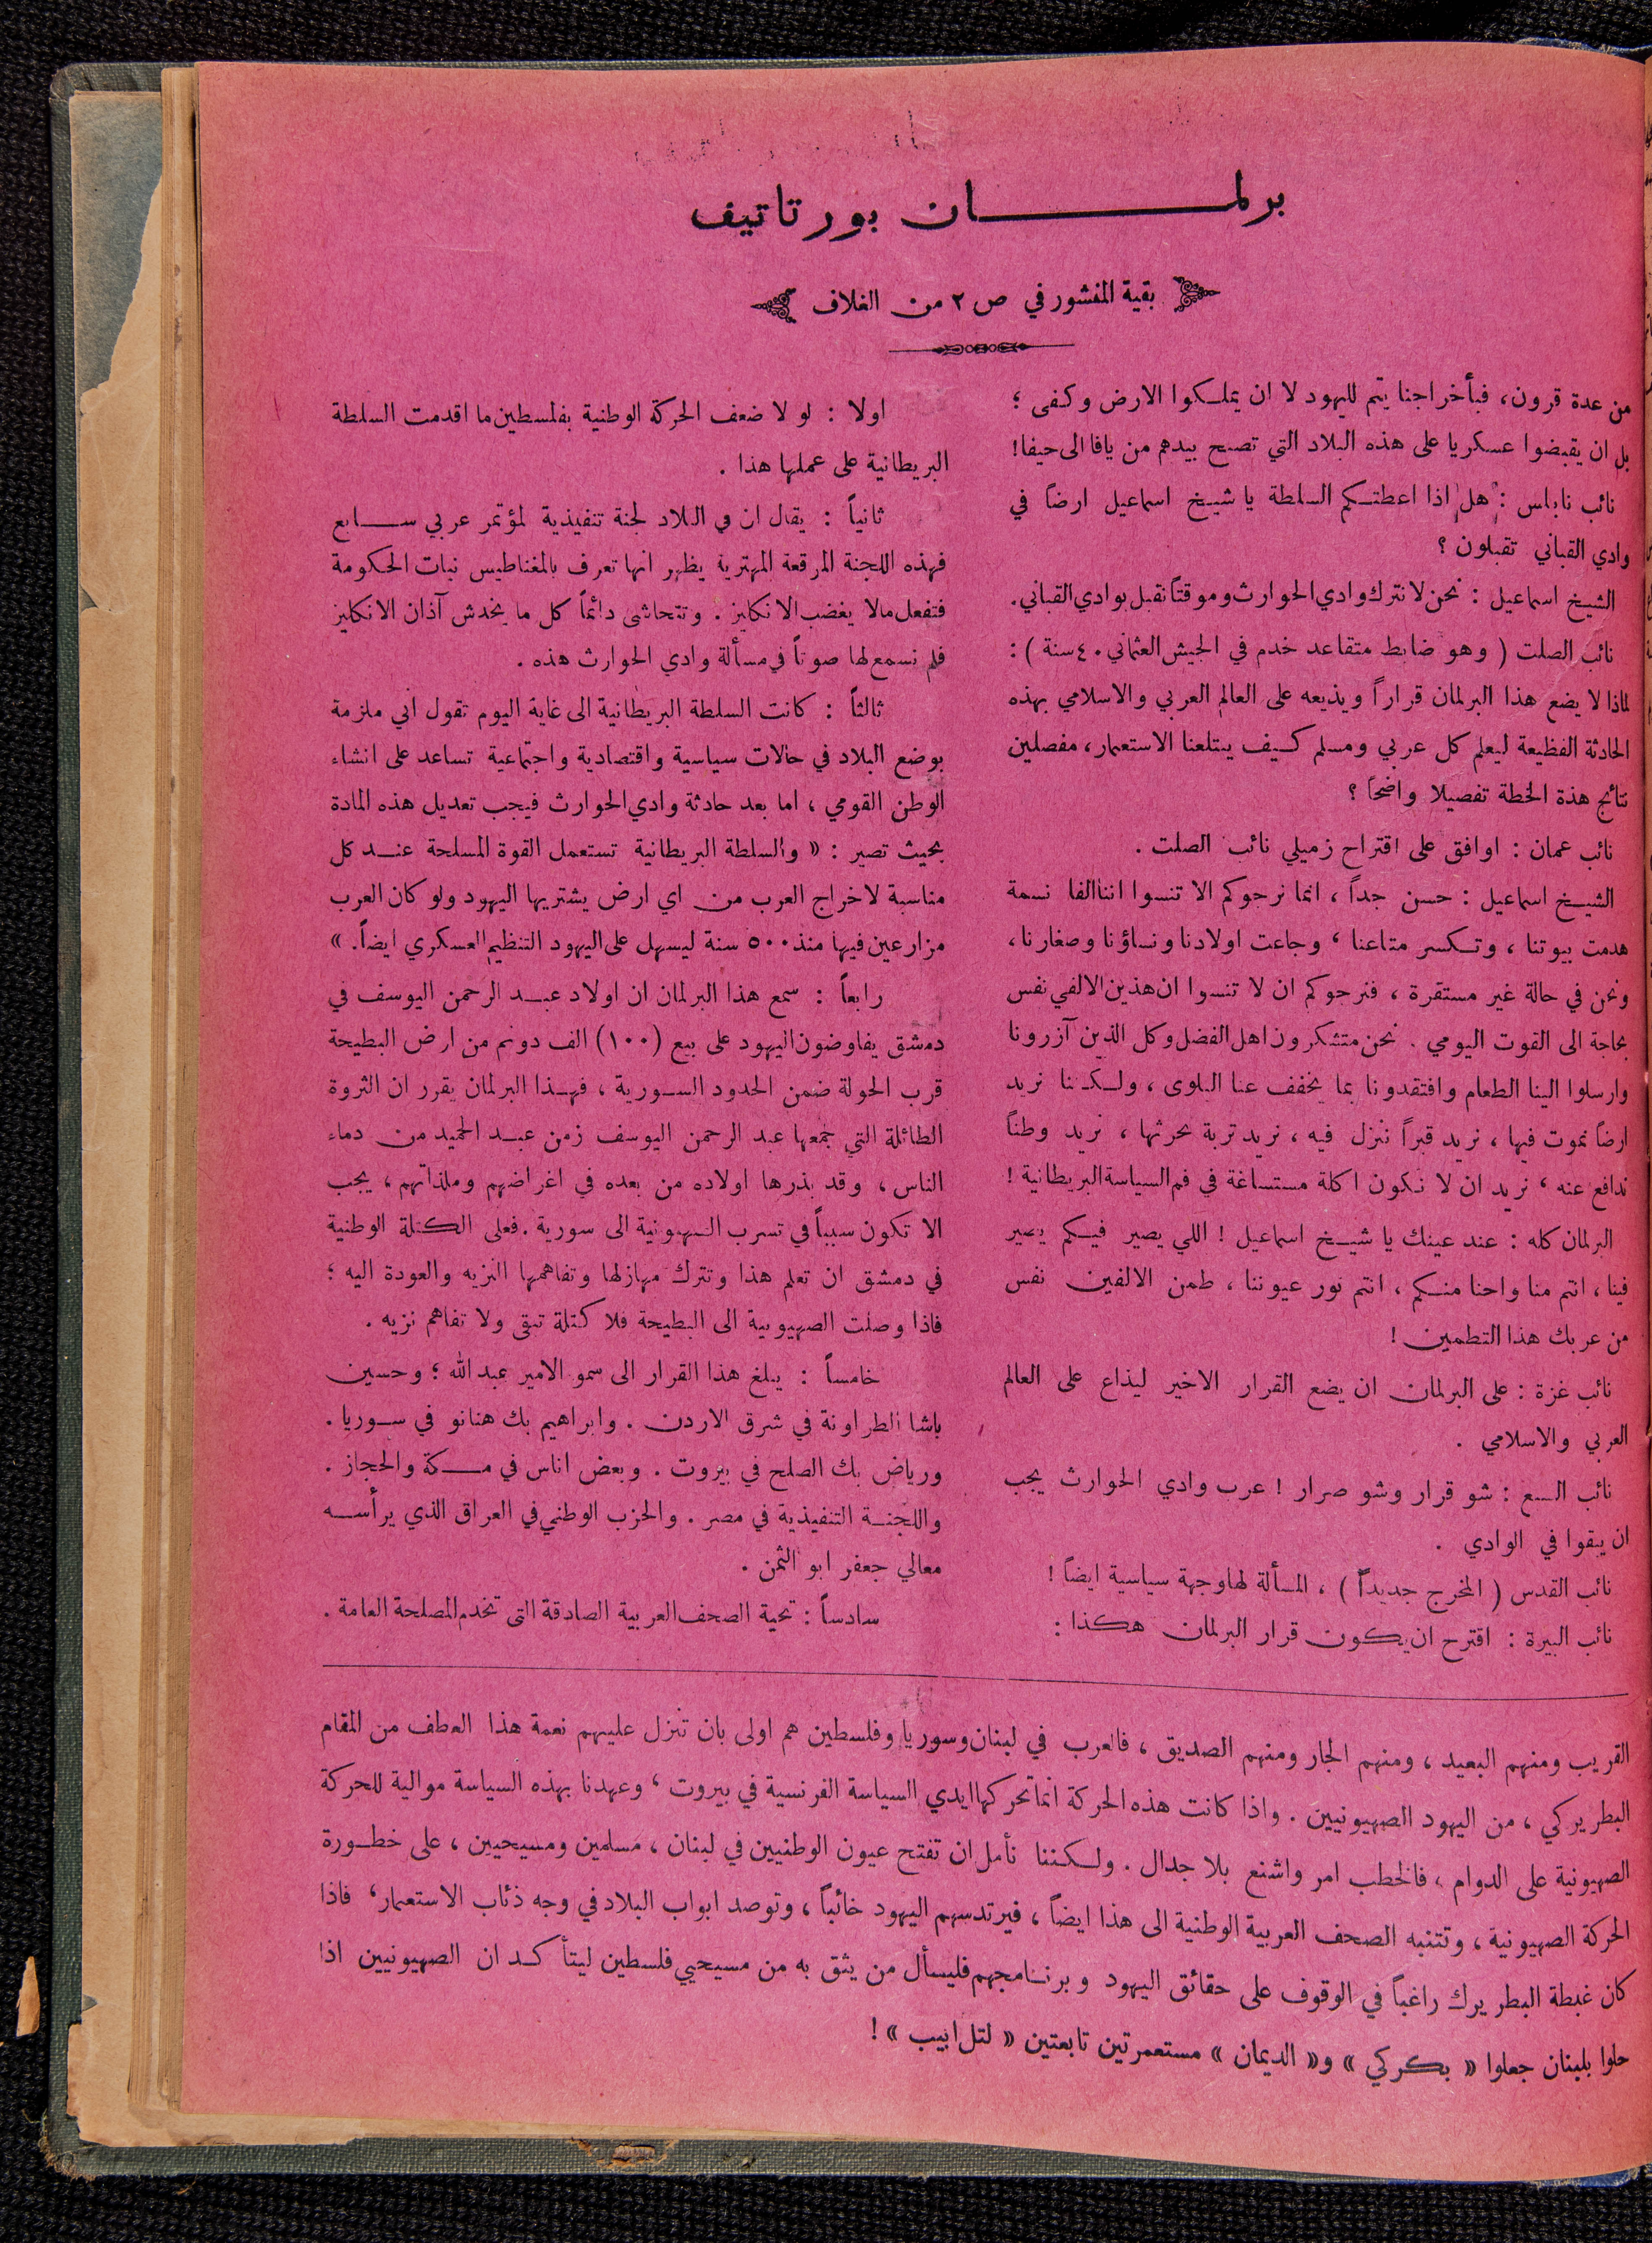 برلمــــان بورتاتيف
بقية المنشور في ص ٢ من الغلاف
من عدة قرون، فبأخراجنا يتم لليهود لا ان يملكوا الارض وكفى ؛
بل ان يقبضوا عسكريا على هذه البلاد التي تصبح بيدهم من يافا الى حيفا!
نائب نابلس : هل اذا اعطتكم السلطة يا شيخ اسماعيل ارضاً في
وادي القباني تقبلون ؟
الشيخ اسماعيل : نحن لا نترك وادي الحوارث وموقتاً نقبل بوادي القباني.
نائب الصلت ( وهو ضابط متقاعد خدم في الجيش العثماني ٤٠ سنة ) :
لماذا لا يضع هذا البرلمان قراراً ويذيعه على العالم العربي والاسلامي بهذه
الحادثة الفظيعة ليعلم كل عربي ومسلم كيف يبتلعنا الاستعمار، مفصلين
نتائج هذة الخطة تفصيلا واضحاً ؟
نائب عمان : اوافق على اقتراح زميلي نائب الصلت .
الشيخ اسماعيل : حسن جداً ، انما نرجوكم الا تنسوا اننا الفا نسمة
هدمت بيوتنا ، وتكسر متاعنا ، وجاعت اولادنا ونساؤنا وصغارنا،
ونحن في حالة غير مستقرة ، فنرجوكم ان لا تنسوا ان هذين الالفي نفس
بحاجة الى القوت اليومي . نحن متشكرون اهل الفضل وكل الذين آزرونا
وارسلوا الينا الطعام وافتقدونا بما يخفف عنا البلوى ، ولكننا نريد
ارضاً نموت فيها ، نريد قبراً ننزل فيه ، نريد تربة نحرثها ، نريد وطناً
ندافع عنه ، نريد ان لا نكون اكلة مستساغة في فم السياسة البريطانية !
البرلمان كله : عند عينك يا شيخ اسماعيل ! اللي يصير فيكم يصير
فينا ، انتم منا واحنا منكم ، انتم نور عيوننا ، طمن الالفين نفس
من عربك هذا التطمين !
نائب غزة : على البرلمان ان يضع القرار الاخير ليذاع على العالم
العربي والاسلامي .
نائب السبع : شو قرار وشو صرار ! عرب وادي الحوارث يجب
ان يبقوا في الوادي .
نائب القدس ( المخرج جديداً ) ، المسألة لها وجهة سياسية ايضاً !
نائب البيرة : اقترح ان يكون قرار البرلمان هكذا :
اولا : لو لا ضعف الحركة الوطنية بفلسطين ما اقدمت السلطة
البريطانية على عملها هذا .
ثانياً : يقال ان في البلاد لجنة تنفيذية لمؤتمر عربي سابع
فهذه اللجنة المرقعة المهترية يظهر انها تعرف بالمغناطيس نيات الحكومة
فتفعل مالا يغضب الانكليز . وتتحاشى دائماً كل ما يخدش آذان الانكليز
فلم نسمع لها صوتاً في مسألة وادي الحوارث هذه .
ثالثاً : كانت السلطة البريطانية الى غاية اليوم تقول اني ملزمة
بوضع البلاد في حالات سياسية واقتصادية واجتماعية تساعد على انشاء
الوطن القومي ، اما بعد حادثة وادي الحوارث فيجب تعديل هذه المادة
بحيث تصير : « والسلطة البريطانية تستعمل القوة المسلحة عند كل
مناسبة لاخراج العرب من اي ارض يشتريها اليهود ولو كان العرب
مزارعين فيها منذ ٥٠٠ سنة ليسهل على اليهود التنظيم العسكري ايضاً. »
رابعاً : سمع هذا البرلمان ان اولاد عبد الرحمن اليوسف في
دمشق يفاوضون اليهود على بيع (١٠٠) الف دونم من ارض البطيحة
قرب الحولة ضمن الحدود السورية ، فهذا البرلمان يقرر ان الثروة
الطائلة التي جمعها عبد الرحمن اليوسف زمن عبد الحميد من دماء
الناس ، وقد بذرها اولاده من بعده في اغراضهم وملذاتهم ، يجب
الا تكون سبباً في تسرب الصهيونية الى سورية . فعلى الكتلة الوطنية
في دمشق ان تعلم هذا وتترك مهازلها وتفاهمها النزيه والعودة اليه ؛
فاذا وصلت الصهيونية الى البطيحة فلا كتلة تبقى ولا تفاهم نزيه .
خامساً : يبلغ هذا القرار الى سمو الامير عبدالله ؛ وحسين
باشا الطراونة في شرق الاردن . وابراهيم بك هنانو في سوريا .
ورياض بك الصلح في بيروت . وبعض اناس في مكة والحجاز .
واللجنة التنفيذية في مصر . والحزب الوطني في العراق الذي يرأسه
معالي جعفر ابو الثمن .
سادساً : تحية الصحف العربية الصادقة التى تخدم المصلحة العامة .
القريب ومنهم البعيد ، ومنهم الجار ومنهم الصديق ، فالعرب في لبنان وسوريا وفلسطين هم اولى بان تنزل عليهم نعمة هذا العطف من المقام
البطريركي ، من اليهود الصهيونيين . واذا كانت هذه الحركة انما تحركها ايدي السياسة الفرنسية في بيروت ، وعهدنا بهذه السياسة موالية للحركة
الصهيونية على الدوام ، فالخطب امر واشنع بلا جدال . ولكننا نأمل ان تفتح عيون الوطنيين في لبنان ، مسلمين ومسيحيين ، على خطورة
الحركة الصهيونية ، وتتنبه الصحف العربية الوطنية الى هذا ايضاً ، فيرتد سهم اليهود خائباً ، وتوصد ابواب البلاد في وجه ذئاب الاستعمار ، فاذا
كان غبطة البطريرك راغباً في الوقوف على حقائق اليهود وبرنامجهم فليسأل من يثق به من مسيحيي فلسطين ليتأكد ان الصهيونيين اذا
حلوا بلبنان جعلوا « بكركي » و« الديمان » مستعمرتين تابعتين « لتل ابيب » !